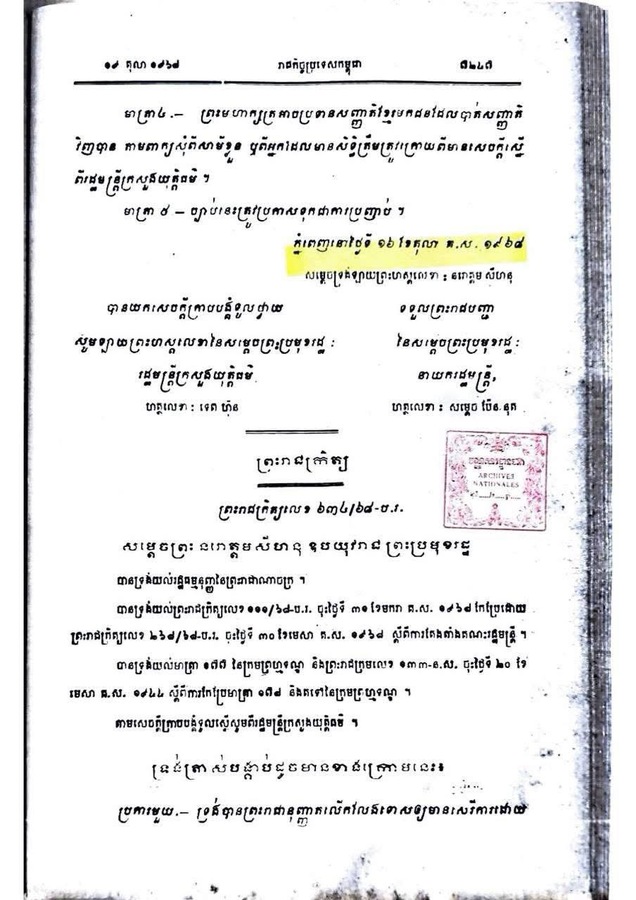 ១៩ តុលា ១៩៦៨ រាជកិច្ចប្រទេសកម្ពុជា ៨២៤៧
មាត្រា៤.— ព្រះមហាក្សត្រអាចប្រទានសញ្ជាតិខ្មែរមកជនដែលបាត់សញ្ជាតិ
វិញបាន តាមពាក្យសុំពីសាមីខ្លួន ឬពីអ្នកដែលមានសិទ្ធិត្រឹមត្រូវក្រោយពីមានសេចក្តីស្នើ
ពីរដ្ឋមន្ត្រីក្រសួងយុត្តិធម៌ ។
មាត្រា ៥ — ច្បាប់នេះត្រូវប្រកាសទុកជាការប្រញាប់ ។
ភ្នំពេញនៅថ្ងៃទី ១៦ ខែតុលា គ.ស. ១៩៦៨
សម្តេចទ្រង់ឡាយព្រះហស្តលេខា : នរោត្តម សីហនុ
បានយកសេចក្តីក្រាបបង្គំទូលថ្វាយ
សូមឡាយព្រះហស្តលេខានៃសម្តេចព្រះប្រមុខរដ្ឋ :
រដ្ឋមន្ត្រីក្រសួងយុត្តិធម៌
ហត្ថលេខា : ទេព ហ៊ុន
ទទួលព្រះរាជបញ្ជា
នៃសម្តេចព្រះប្រមុខរដ្ឋ :
នាយករដ្ឋមន្ត្រី,
ហត្ថលេខា : សម្តេច ប៉ែន.នុត
ព្រះរាជក្រិត្យ
ARCHIVES
NATIONALES
ព្រះរាជក្រិត្យលេខ ៦៣៤/៦៨-ប.រ.
សម្តេចព្រះ នរោត្តមសីហនុ ឧបយុវរាជ ព្រះប្រមុខរដ្ឋ
បានទ្រង់យល់រដ្ឋធម្មនុញ្ញនៃព្រះរាជាណាចក្រ ។
បានទ្រង់យល់ព្រះរាជក្រិត្យលេខ ១១១/៦៨-ប.រ. ចុះថ្ងៃទី ៣១ ខែមករា គ.ស. ១៩៦៨ កែប្រែដោយ
ព្រះរាជក្រិត្យលេខ ២៦៨/៦៨-ប.រ. ចុះថ្ងៃទី ៣០ ខែមេសា គ.ស. ១៩៦៨ ស្តីពីការតែងតាំងគណៈរដ្ឋមន្ត្រី ។
បានទ្រង់យល់មាត្រា ១៧៧ នៃក្រមព្រហ្មទណ្ឌ និងព្រះរាជក្រមលេខ ១៣៣-ន.ស. ចុះថ្ងៃទី ២០ ខែ
មេសា គ.ស. ១៩៤៤ ស្តីពីការកែប្រែមាត្រា ១៧៨ និងតទៅនៃក្រមព្រហ្មទណ្ឌ ។
តាមសេចក្តីក្រាបបង្គំទូលស្នើសូមពីរដ្ឋមន្ត្រីក្រសួងយុត្តិធម៌ ។
ទ្រង់ត្រាស់បង្គាប់ដូចមានខាងក្រោមនេះ៖
ប្រការមួយ.— ទ្រង់បានព្រះរាជានុញ្ញាតលើកលែងទោសឲ្យមានសេរីការដោយ